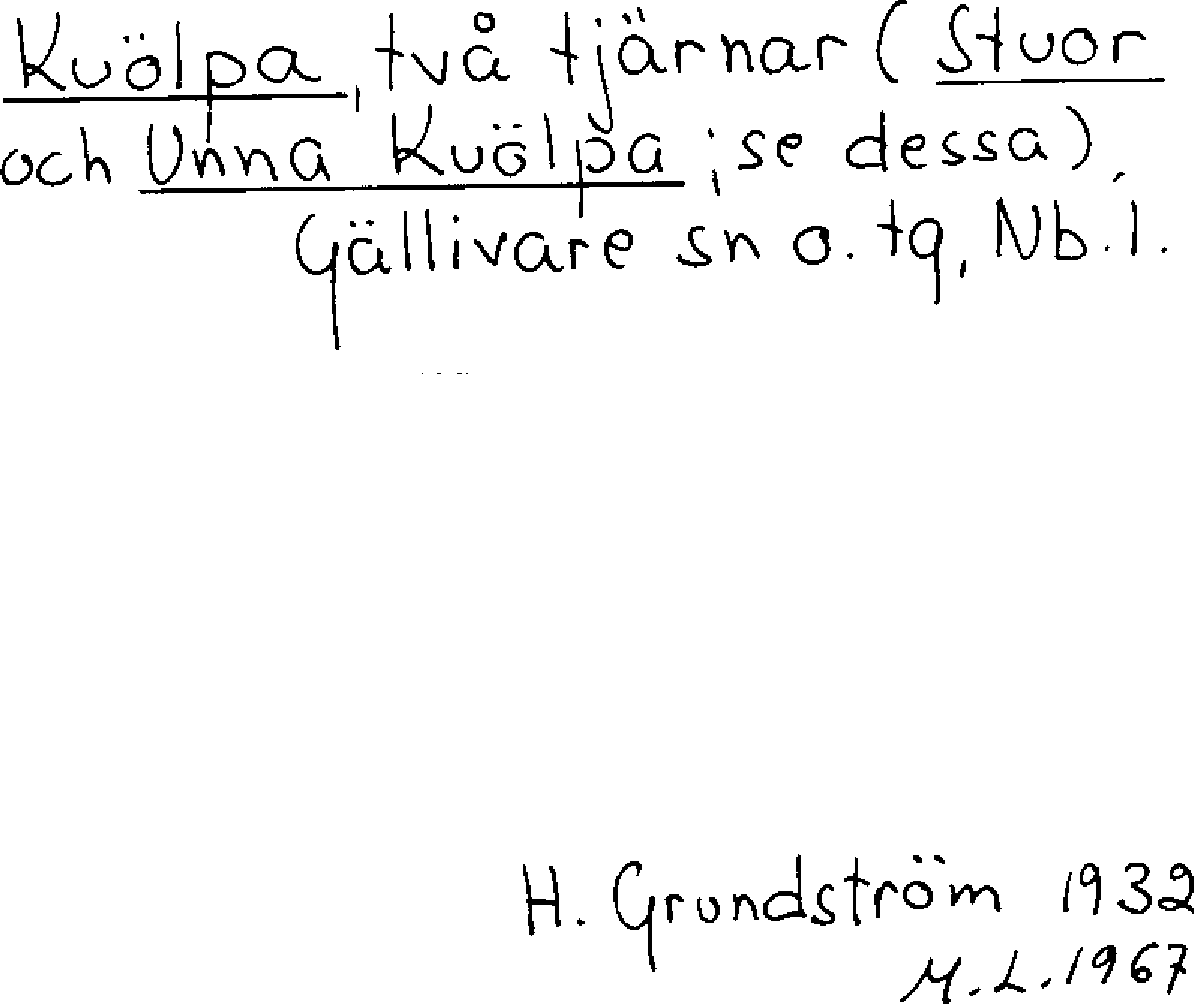 Kuölpa, två tjärnar (Stuor
och Unna Kuölpa; se dessa),
Gällivare sn o. tg, Nb. l.
H. Grundström 1932
M. L. 1967